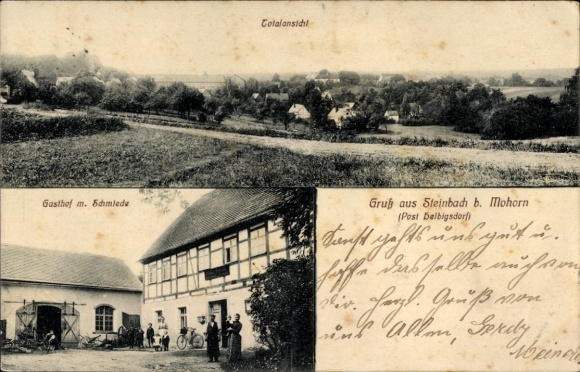 Totalansicht
Gasthof m. Schmiede
Gruß aus Steinbach b. Mohorn
(Post Helbigsdorf)
Sonst gehts uns gut u.
hoffe dasselbe auch von
dir. Herzl. Gruß von
uns Allen, Gerdy